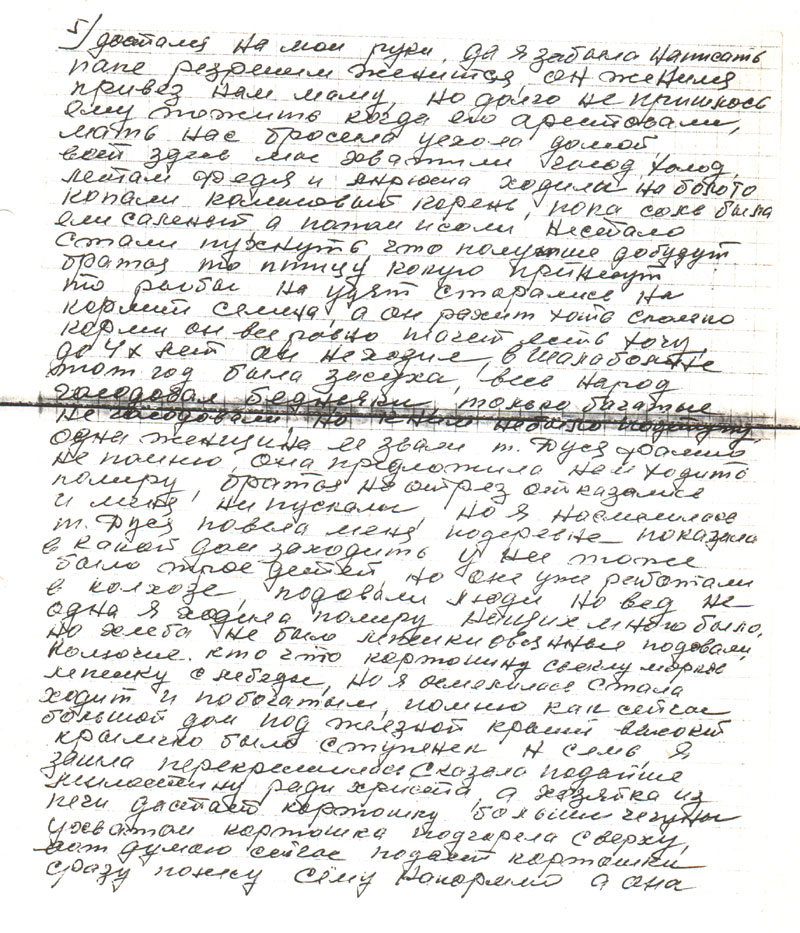 5/ достался на мои руки, да я забыла написать
папе резрешили женится, он женился
привез нам маму, но долго не пришлось
ему пожить когда его арестовали,
мать нас бросела уехола домой,
вот здесь мы схватили голод, холод,
летам Федя и Андрюша ходили на болото
копали камышовый корень, пока соль была
ели саленый а патам и соли нестало
стали пухнуть что получше добудут
братья то птицу какую принесут
то рыбы на удят старались на
кормит семена, а он рахит хотя сколько
корми он все ровно плачет есть хочу,
до 4х лет он не ходил, в Шалаболине
этот год была засуха, весь народ
галодовал бедняки, только багатые
не галодовали, но к ним небыло подступу
одна женщина ее звали т. Дуся
не помню, она предложила нам ходить
помиру, братья на отрез отказались
и меня ни пускали, но я насмелилась
т. Дуся повела меня подеревне показала
в какой дом заходить у ней тоже
было трое детей но они уже работали
в колхозе, подовали люди но вед не
одна я ходила помиру нищих много было,
но хлеба не было лепешки овсянные подовали,
колючие. кто что картошину свеклу морковь
лепешку с лебеды, но я осмелилась стала
ходит и побогатым, помню как сейчас
большой дом под железной крышей высокий
крылечко было ступенек н семь, я
зашла перекрестилась сказала подайте
милостину ради христа, а хозяйка из
печи достаёт картошку большие чегуны
ухватам картошка подгорела сверху,
вот думаю сейчас подаст картошки
сразу понесу Сёму накормлю а она